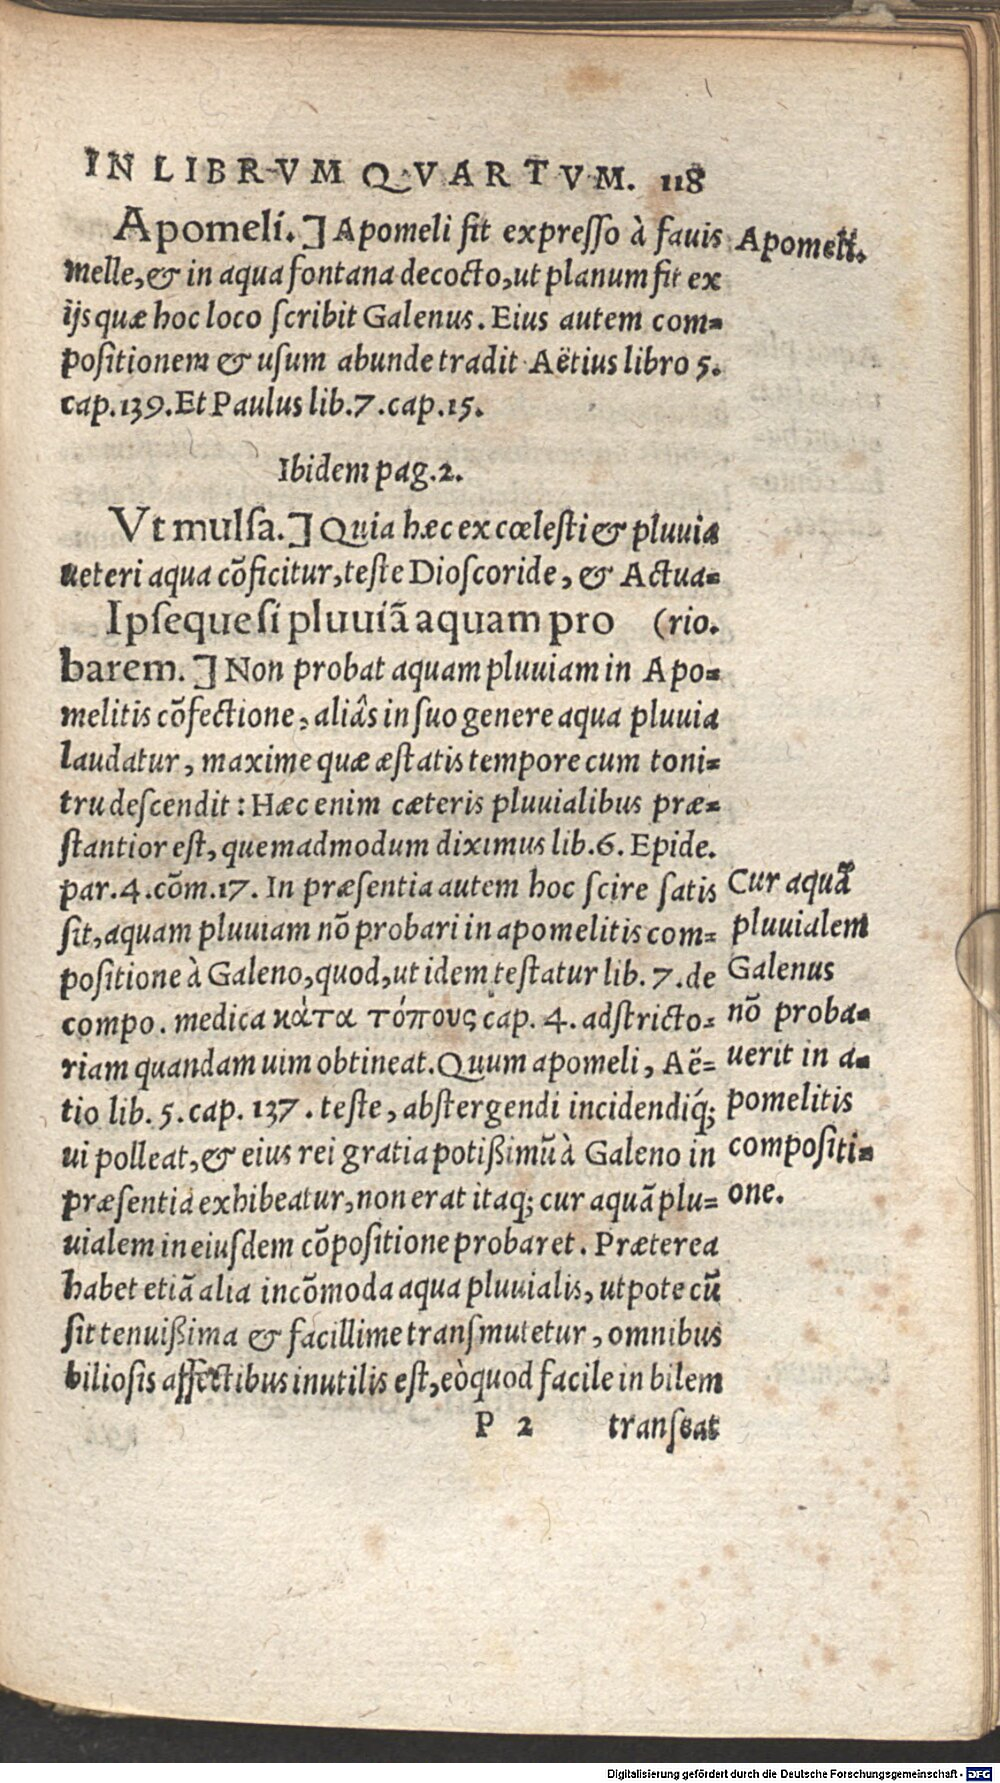 IN LIBRVM QVARTVM. 118
Apomeli.] Apomeli fit expreſſo à fauis
melle, & in aqua fontana decocto, ut planum fit ex
ijs quæ hoc loco ſcribit Galenus. Eius autem com=
poſitionem & uſum abunde tradit Aëtius libro 5.
cap. 139. Et Paulus lib. 7. cap. 15.
Apomeli.
Ibidem pag. 2.
Vt mulſa.] Quia hæc ex cœleſti & pluuia
ueteri aqua cõficitur, teſte Dioſcoride, & Actua=
Ipſeque ſi pluuiã aquam pro (rio.
barem.] Non probat aquam pluuiam in Apo=
melitis cõfectione, aliâs in ſuo genere aqua pluuia
laudatur, maxime quæ æſtatis tempore cum toni=
tru deſcendit: Hæc enim cæteris pluuialibus præ=
ſtantior eſt, quemadmodum diximus lib. 6. Epide.
par. 4. cõm. 17. In præſentia autem hoc ſcire ſatis
ſit, aquam pluuiam nõ probari in apomelitis com=
poſitione à Galeno, quod, ut idem teſtatur lib. 7. de
compo. medica κάτα τόπους cap. 4. adſtricto=
riam quandam uim obtineat. Quum apomeli, Aë=
tio lib. 5. cap. 137. teſte, abſtergendi incidendiq́;
ui polleat, & eius rei gratia potißimũ à Galeno in
præſentia exhibeatur, non erat itaq; cur aquã plu=
uialem in eiuſdem cõpoſitione probaret. Præterea
habet etiã alia incõmoda aqua pluuialis, utpote cũ
ſit tenuißima & facillime tranſmutetur, omnibus
bilioſis affectibus inutilis eſt, eò quod facile in bilem
Cur aquã
pluuialem
Galenus
nõ proba=
uerit in a=
pomelitis
compoſiti=
one.
P 2 tranſeat
Digitalisierung gefördert durch die Deutsche Forschungsgemeinschaft - DFG